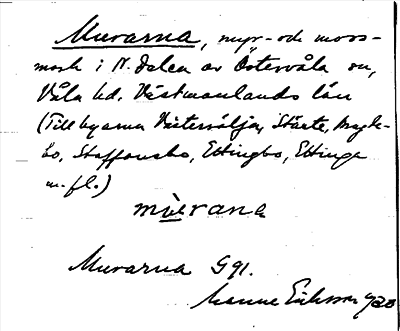 Murarna, myr- och moss-
mark i N. delen av Östervåla sn,
Våla hd. Västmanlands län
(Till byarna Västervälja, Stärte,
bo, Staffansbo, Ettingbo, Ettinga
m. fl.)
mùrana
Murarna G 91.
Manne Eriksson 1930